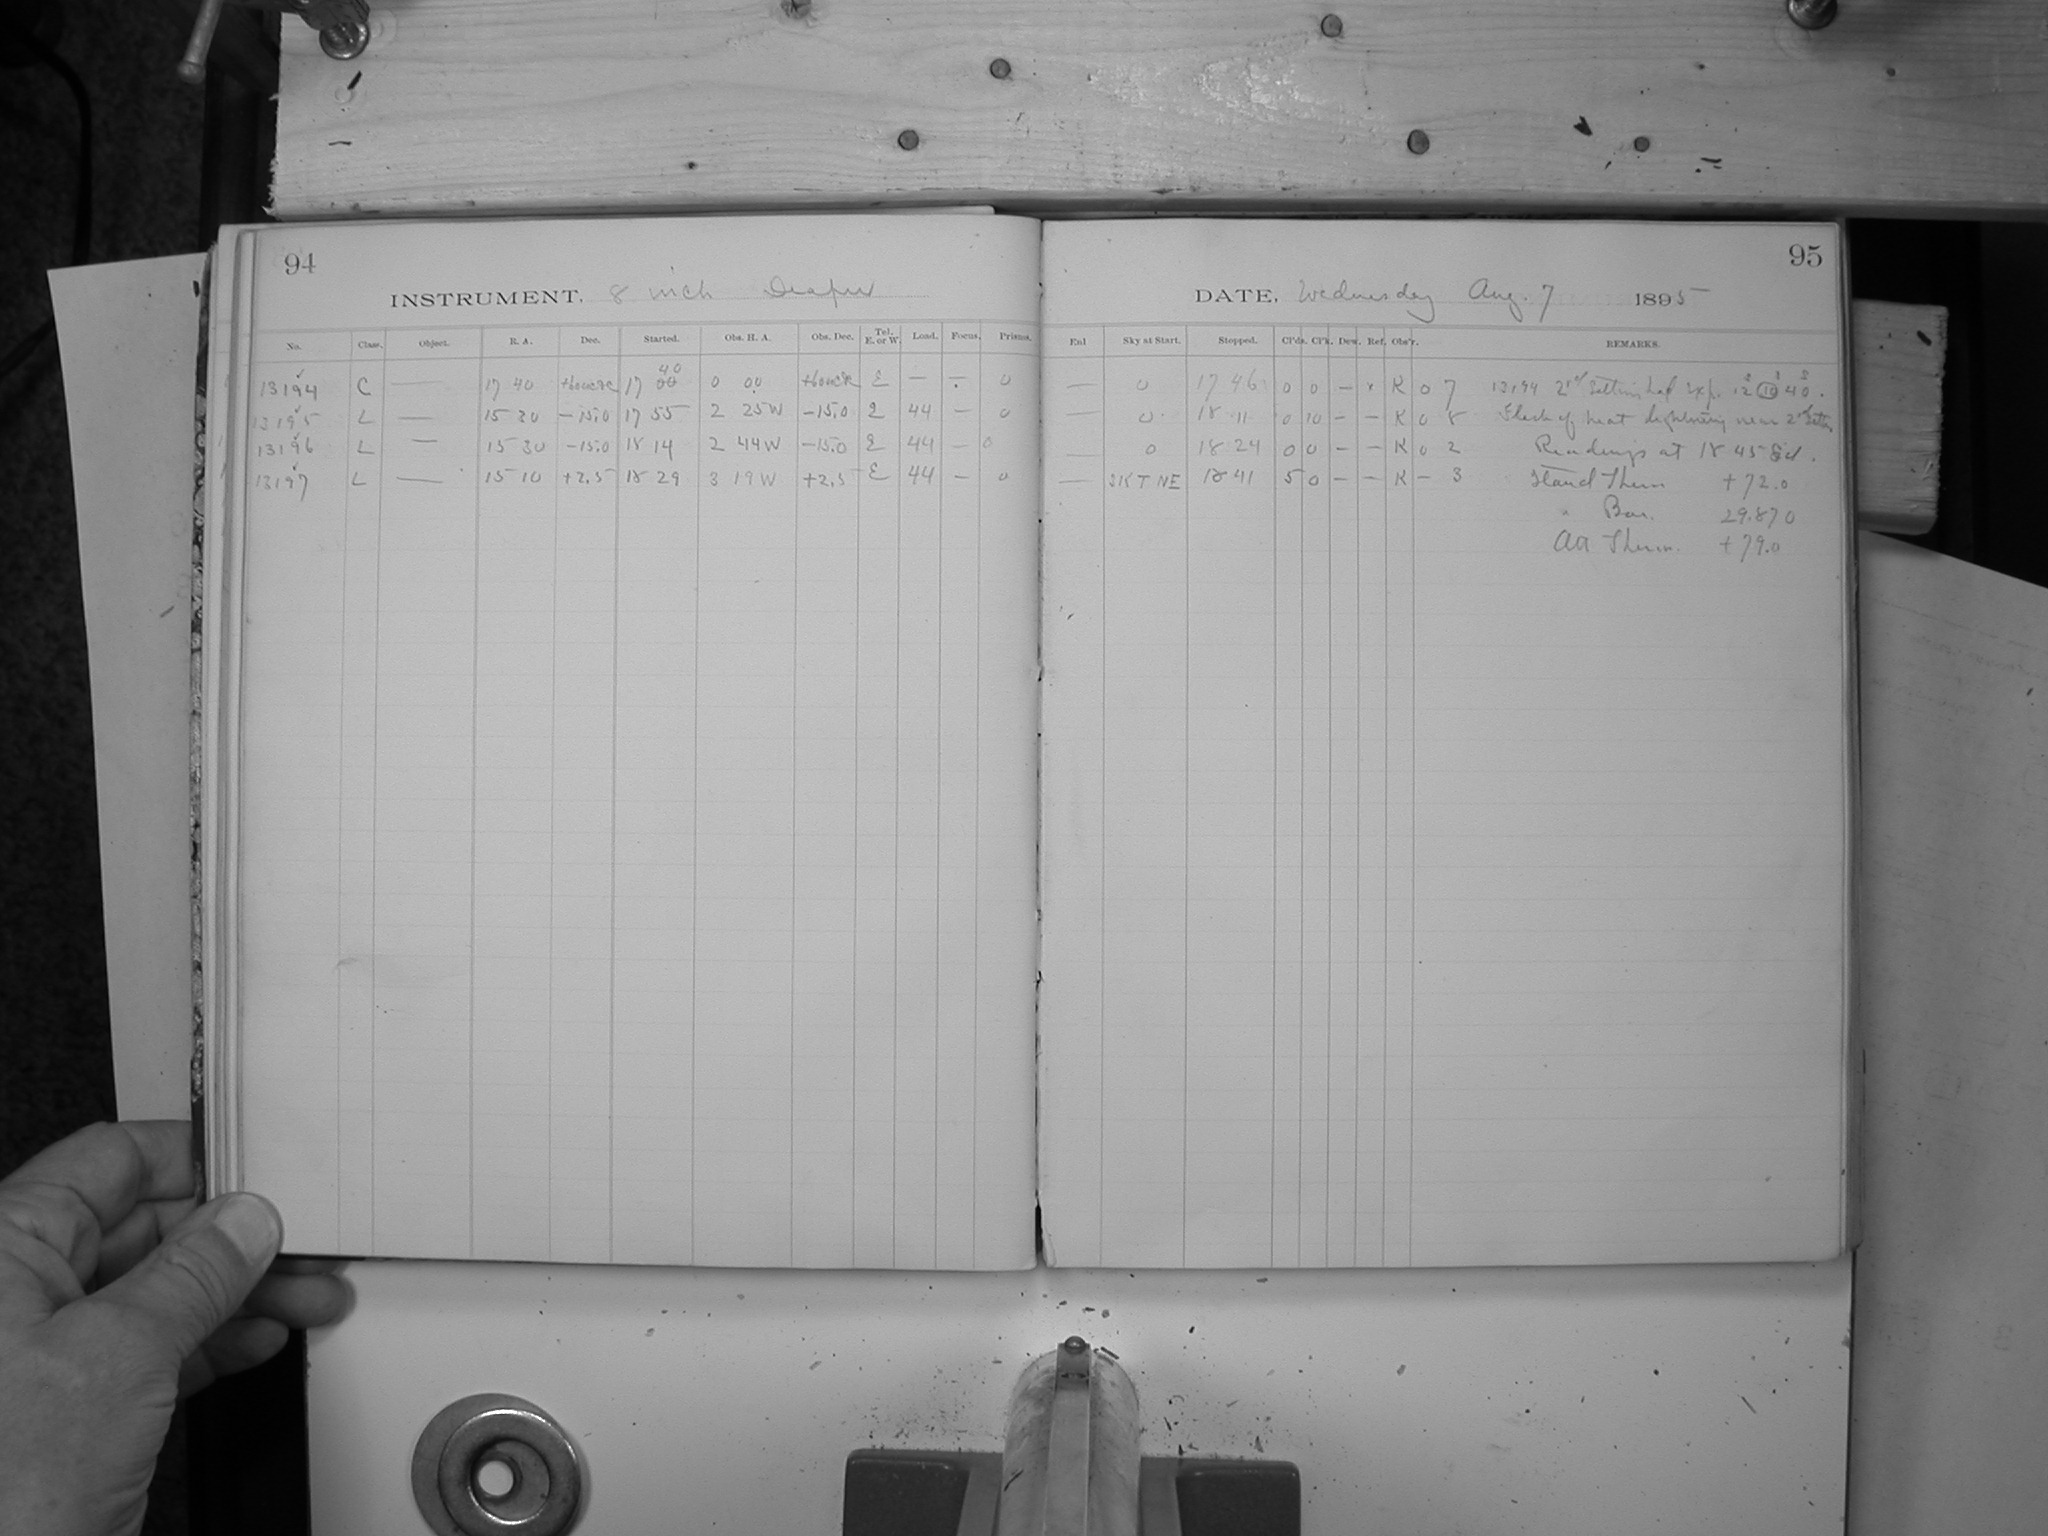 94
INSTRUMENT, 8 inch Draper
No. Class. Object. R. A. Dec. Started. Obs. H. A. Obs. Dec. Tel. E. or W. Load. Focus. Prisms.
13194 C — 17 40 17 40 0 00 E — — 0
13195 L — 15 30 -15.0 17 55 2 25W -15.0 E 44 — 0
13196 L — 15 30 -15.0 18 14 2 44W -15.0 E 44 — 0
13197 L — 15 10 +2.5 18 29 3 19W +2.5 E 44 — 0
95
DATE, Wednesday Aug. 7 1895
Enl Sky at Start. Stopped. Cl'ds. Cl'k. Dew. Ref. Obs'r. REMARKS.
— 0 17 46 0 0 — K 0 7 13194 2nd Setting had exp. 12 10 40.
— 0 18 11 0 10 — — K 0 8 Flash of heat lightning near 2nd Setting
— 0 18 24 0 0 — — K 0 2 Readings at 18 45 Sid.
— SKT NE 18 41 5 0 — — K — 3 Stand Therm +72.0
" Bar. 29.870
Att Therm. +79.0